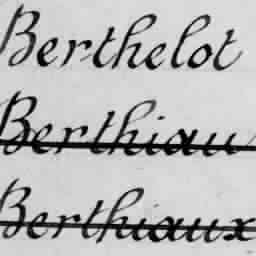 Berthelot
Berthiau
Berthiaux